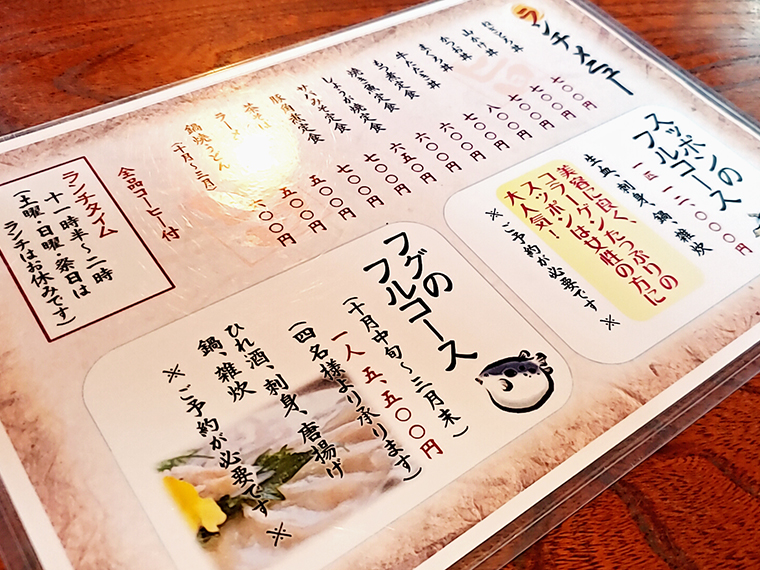 ランチメニュー
山かけ丼
かつ丼
まぐろ丼
牛たたき丼
もつ煮定食
焼き魚定食
しょうが焼定食
サバのみそ定食
豚角煮定食
茶そば
ラーメン
鍋焼うどん(十月～三月)
七〇〇円
七〇〇円
七〇〇円
八〇〇円
七〇〇円
六〇〇円
六五〇円
七〇〇円
七〇〇円
五〇〇円
五〇〇円
六〇〇円
全品コーヒー付
ランチタイム
十一時半～二時
(土曜・日曜・祭日は
ランチはお休みです)
スッポンの
フルコース
一匹 一二、〇〇〇円
生血、刺身、鍋、雑炊
美容に良く、たっぷりの
コラーゲン
スッポンは女性の方に
大人気!
※ご予約が必要です※
フグの
フルコース
(十月中旬～三月末)
一人 五、五〇〇円
(四名様より承ります)
ひれ酒、刺身、唐揚げ
鍋、雑炊
※ご予約が必要です※